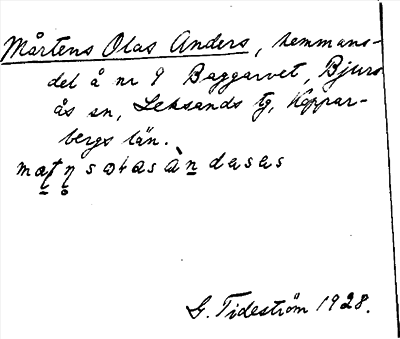 Mårtens Olas Anders, hemmans-
del å nr 9 Baggarvet, Bjurs-
ås sn, Leksands tg, Koppar-
bergs län.
G. Tideström 1928.